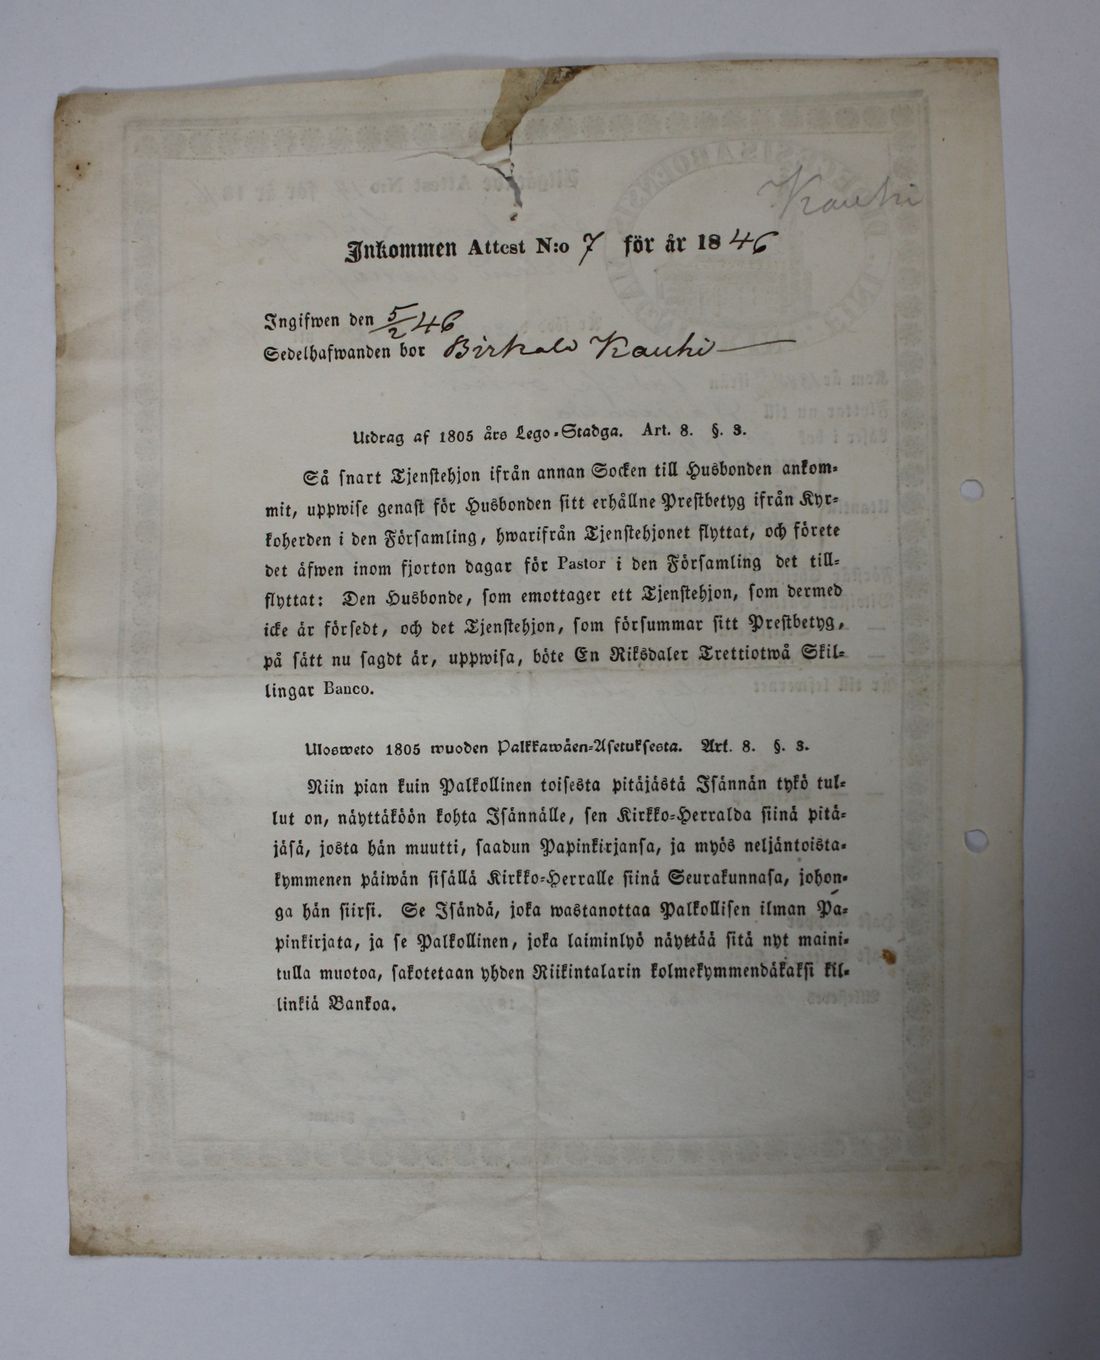 Kauhi
Inkommen Attest N:o 7 för år 1846
Ingifwen den 5/2 46
Sedelhafwanden bor Birkala Kauhi
Utdrag af 1805 års Lego-Stadga. Art. 8. §. 3.
Så snart Tjenstehjon ifrån annan Socken till Husbonden ankom-
mit, uppwise genast för Husbonden sitt erhållne Prestbetyg ifrån Kyr-
koherden i den Församling, hwarifrån Tjenstehjonet flyttat, och förete
det äfwen inom fjorton dagar för Pastor i den Församling det till-
flyttat: Den Husbonde, som emottager ett Tjenstehjon, som dermed
icke är försedt, och det Tjenstehjon, som försummar sitt Prestbetyg,
på sätt nu sagdt är, uppwisa, böte En Riksdaler Trettiotwå Skil-
lingar Banco.
Ulosweto 1805 wuoden Palkkawäen-Asetuksesta. Art. 8. §. 3.
Niin pian kuin Palkollinen toisesta pitäjästä Isännän tykö tul-
lut on, näyttäköön kohta Isännälle, sen Kirkko-Herralda siinä pitä-
jäsä, josta hän muutti, saadun Papinkirjansa, ja myös neljäntoista-
kymmenen päiwän sisällä Kirkko-Herralle siinä Seurakunnasa, johon-
ga hän siirsi. Se Isändä, joka wastanottaa Palkollisen ilman Pa-
pinkirjata, ja se Palkollinen, joka laiminlyö näyttää sitä nyt maini-
tulla muotoa, sakotetaan yhden Riikintalarin kolmekymmendäkaksi kil-
linkiä Bankoa.